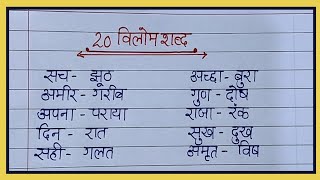 20 विलोम शब्द
सच - झूठ अच्छा - बुरा
अमीर - गरीब गुण - दोष
अपना - पराया राजा - रंक
दिन - रात सुख - दुख
सही - गलत अमृत - विष